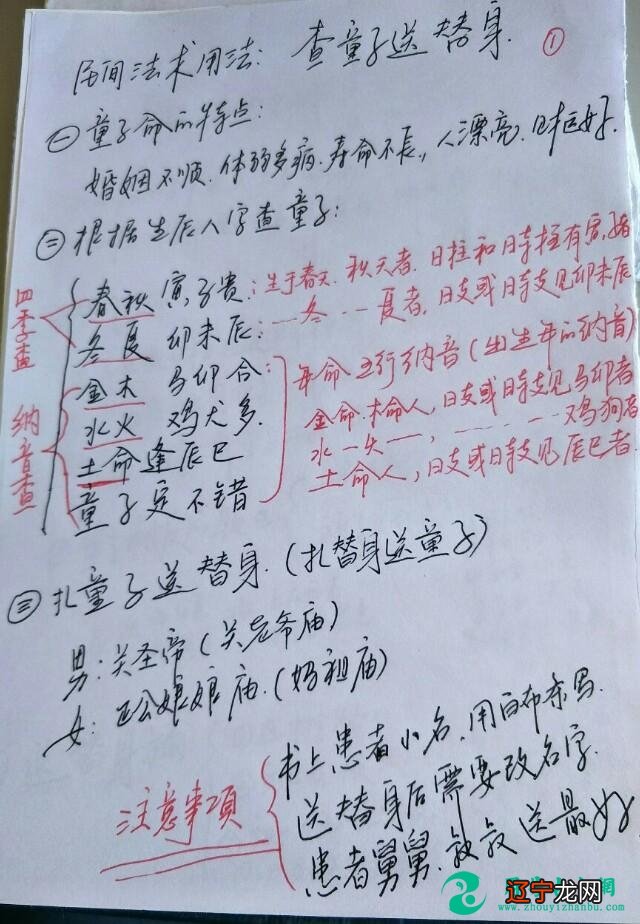 民间法术用法: 查童子送替身. ①
㊀童子命的特点:
婚姻不顺. 体弱多病. 寿命不长, 人漂亮.
㊁根据生辰八字查童子:
四季查
春秋寅子贵: 生于春天. 秋天者. 日柱和时柱有寅.
冬夏卯未辰: …冬…夏者, 日支或日时支见卯未辰
纳音查
金木马卯合:
水火鸡犬多.
土命逢辰巳
童子定不错
年命五行纳音(出生年的纳音)
金命. 木命人, 日支或日时支见马卯者
水一火一, ……… 鸡狗者
土命人, 日支或日时支见辰巳者.
㊂扎童子送替身. (扎替身送童子)
男: 关圣帝(关老爷庙)
女: 娘娘庙. (妈祖庙)
注意事项
书上患者小名, 用白布条写.
送替身后需要改名字.
患者舅舅. 叔叔送最好
辽宁龙网
www.zhouyizhanbu.com